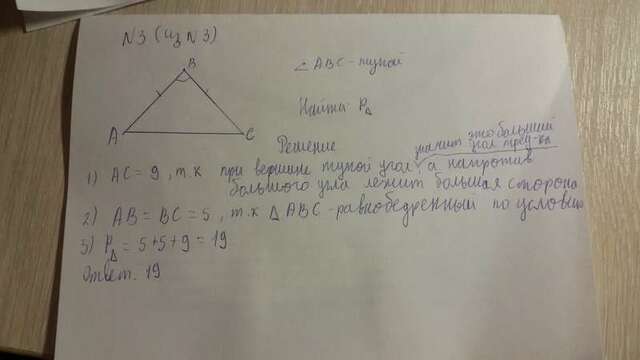 N3 (из N3)
B
∠ABC - тупой
A
C
Найти: P△
Решение
значит это больший угол треуг-ка
1) AC = 9, т.к при вершине тупой угол, а напротив
большого угла лежит большая сторона
2) AB = BC = 5, т.к △ABC - равнобедренный по условию
3) P△ = 5+5+9 = 19
Ответ. 19